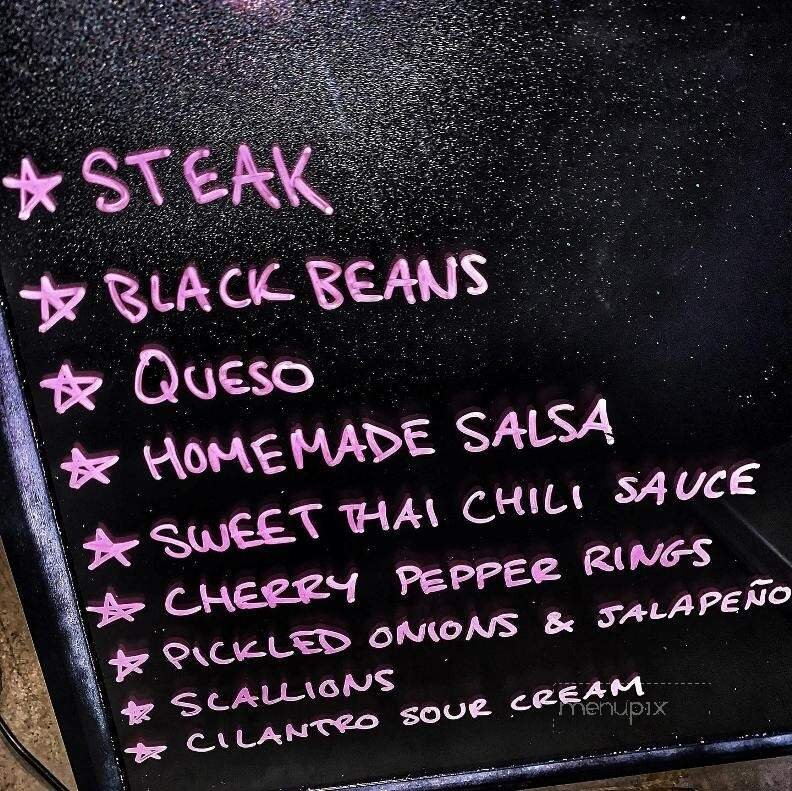 ☆ STEAK
☆ BLACK BEANS
☆ QUESO
☆ HOMEMADE SALSA
☆ SWEET THAI CHILI SAUCE
☆ CHERRY PEPPER RINGS
☆ PICKLED ONIONS & JALAPEÑO
☆ SCALLIONS
☆ CILANTRO SOUR CREAM
menupix